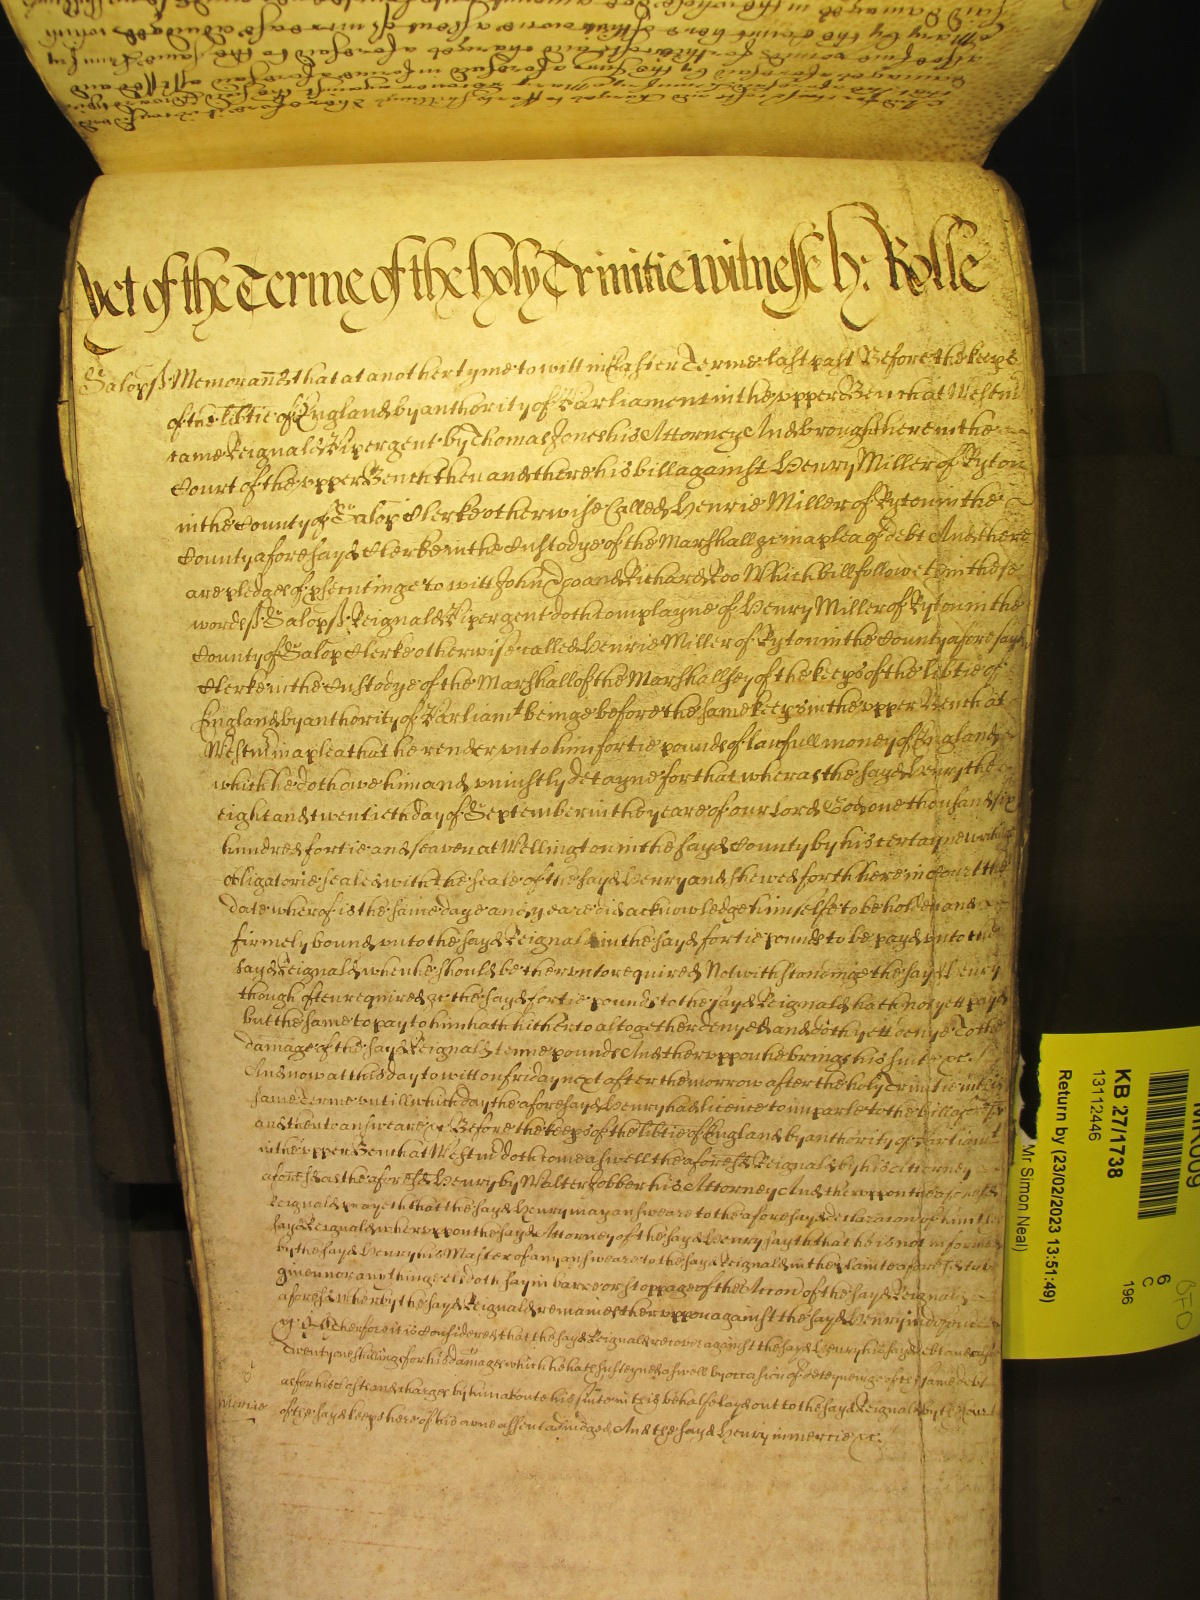 yet of the Terme of the holy Trinitie witnesse h: Rolle
Salop ss Memorand that at another tyme to witt in Easter Terme last past Before the keeps
of the libtie of England by authority of Parliament in the upper Bench at Westm
came Reignald Pipergent by Thomas Jones his Attorney And brought here in the
Court of the upper Bench then and there his bill against Henry Miller of Ryton
in the County of Salop Clerke otherwise Called Henrie Miller of Ryton in the
County aforesayd Clerke in the Custodye of the Marshall &c in a plea of debt And there
are pledges of psecutinge to witt John Doo and Richard Roo Which bill followeth in these
words ss Salop ss Reignald Pipergent doth complayne of Henry Miller of Ryton in the
County of Salop Clerke otherwise called Henrie Miller of Ryton in the County aforesayd
Clerke in the Custodye of the Marshall of the Marshallsey of the keeps of the libtie of
England by authority of Parliamt beinge before the same keeps in the upper Bench at
Westm in a plea that he render unto him fortie pounds of lawfull money of England
which he doth owe him and uniustly detayne for that wheras the sayd Henry the
eight and twentieth day of September in the yeare of our Lord God one thousand six
hundred fortie and seaven at Wellington in the sayd County by his certayne writinge
obligatorie sealed with the seale of the sayd Henry and shewed forth here in Court the
date wherof is the same day and yeare did acknowledge himselfe to be holden and
firmely bound unto the sayd Reignald in the sayd fortie pounds to be payd unto the
sayd Reignald when he should be therunto required Notwithstandinge the sayd Henry
though often required &c the sayd fortie pounds to the sayd Reignald hath not yett payd
but the same to pay to him hath hitherto altogether denyed and doth yett denye To the
damage of the sayd Reignald tenne pounds And theruppon he brings his suite &c.
And now at this day to witt on friday next after the morrow after the holy Trinitie in this
same Terme untill which day the aforesayd Henry had licence to imparle to the bill aforesd
and then to answeare &c Before the keeps of the libtie of England by authority of Parliamt
in the upper Bench at Westm doth come aswell the aforesd Reignald by his Attorney
aforesd as the aforesd Henry by Walter Jobber his Attorney And theruppon the aforesd
Reignald prayeth that the sayd Henry may answeare to the aforesayd declaracon of him the
sayd Reignald wheruppon the sayd Attorney of the sayd Henry sayth that he is not informed
by the sayd Henry his Master of any answeare to the sayd Reignald in the plainte aforesd to be
given nor any thinge els doth say in barre or stoppage of the Accon of the sayd Reignald
aforesd wherby the sayd Reignald remaines theruppon against the sayd Henry
&c Therfore it is Considered that the sayd Reignald recover against the sayd Henry his sayd debt and
twenty one shillings for his damages which he hath susteyned aswell by occasion of deteyneinge of the same debt
as for his Costs and charges by him about his suite in this behalfe layd out to the sayd Reignald by the Court
of the sayd keeps here of his owne assent adiudged And the sayd Henry in mercie &c.
mercie
KB 27/1738
13112446
Return by (23/02/2023 13:51:49)
Mr Simon Neal)
196
6
C